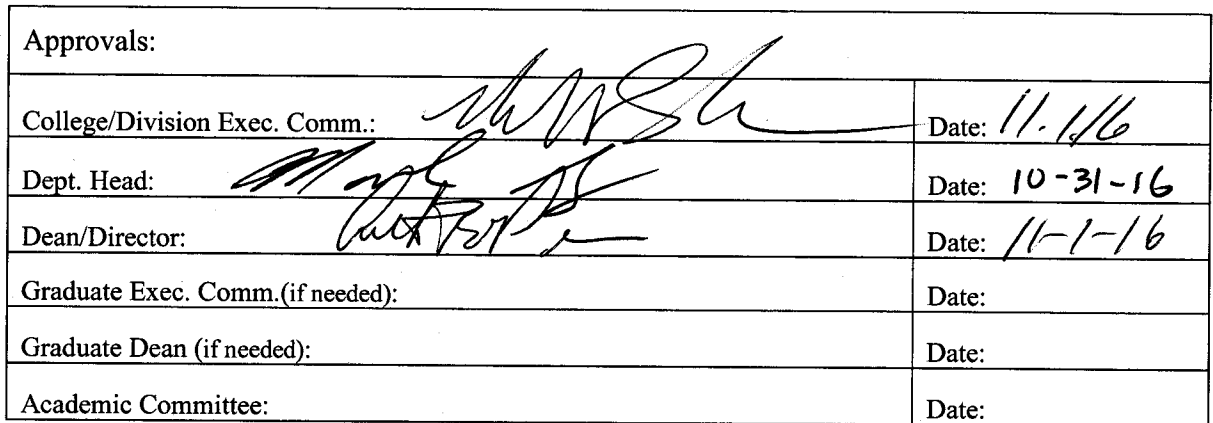 Approvals:
College/Division Exec. Comm.: Date: 11.1.16
Dept. Head: Date: 10-31-16
Dean/Director: Date: 11-1-16
Graduate Exec. Comm.(if needed): Date:
Graduate Dean (if needed): Date:
Academic Committee: Date: